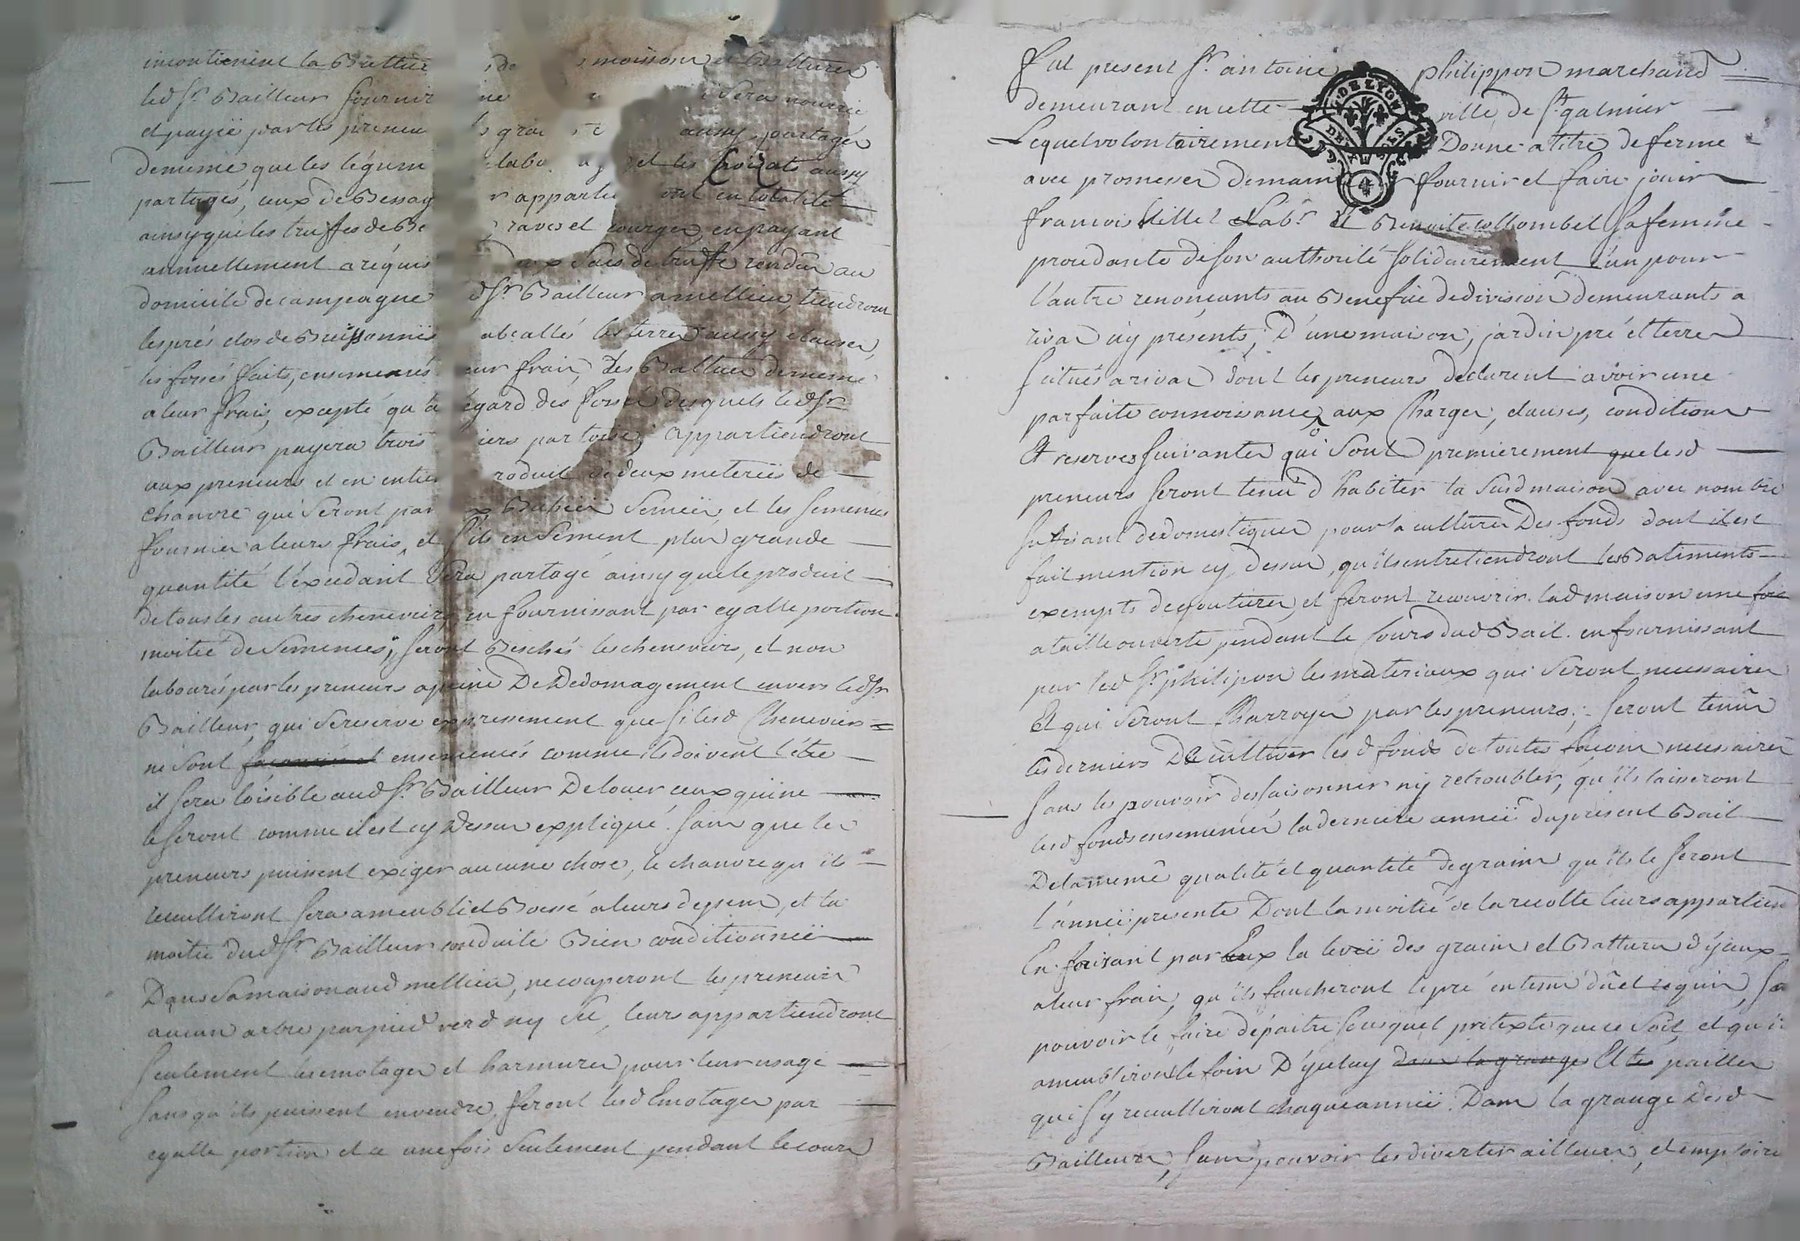 incontienent la Battue de moisson et Batture
led Sr Bailleur fournir ne sera nourrie
et payée par les preneu grai aussy partagés
demême que les légume labo et les aussy
partagés, ceux de Bessag r apparti ont en totalité
ainsy que les truffes de Be raves et courges en payant
annuellement a réquis deux sacs de truffe rendûs au
domicile de campagne dSr Bailleur a mellieu, tiendront
les prés clos de Buissonnies les terres aussy closes,
les fossés faits, ensemencés eur frais, les Battues demême
a leur frais, excepté qu'a égard des fossés desquels led Sr
Bailleur payera trois iers par toise, appartiendront
aux preneurs et en entie roduit de deux meteriés de
chanvre qui seront par semées, et les semences
fournies a leurs frais, et s'ils en sement plus grande
quantité l'éxcedant sera partagé ainsy que le produit
de tous les autres cheneviers, en fournissant par egalle portion
moitié de semences, seront Beschés les cheneviers, et non
labourés par les preneurs a peine De Dedomagement envers led Sr
Bailleur, qui se reserve expressement que si lesd Cheneviers
ne sont ensemencés comme ils doivent l'être
il sera loisible aud Sr Bailleur De louer ceux qui ne
le seront comme il est cy Dessus expliqué. sans que les
preneurs puissent exiger aucune chose, le chanvre qu'ils
recueilliront sera ameubli et a leurs depens, et la
moitié dud Sr Bailleur conduite Bien conditionnée
Dans sa maison aud mellieu, ne couperont les preneurs
aucun arbre par pied verd ny sec, leurs appartiendront
seulement les emotages et harmures pour leur usage
sans qu'ils puissent en vendre, feront lesd Emotages par
egalle portion et ce une fois seulement pendant le cours
Fut present Sr antoine philippon marchand
demeurant en cette ville, de St galmier
Lequel volontairement Donne a titre de ferme
avec promesses de maintenir fournir et faire jouir
francois Lab.r Et Benoite collombet sa femme
procedante de son authorité solidairement l'un pour
l'autre renonçants au Benefice de division demeurants a
rivas icy présents, D'une maison, jardin pré et terres
scitués a rivas dont les preneurs declarent avoir une
parfaite connoissance, aux Charges, clauses, conditions
Et reserves suivantes qui sont premierement que lesd
preneurs seront tenus d'habiter la susd maison avec nombre
suffisant de domestiques pour la culture Des fonds dont il est
fait mention cy dessus, qu'ils entretiendront les Batiments
exempts de goutieres, et feront recouvrir lad maison une fois
a taille ouverte pendant le Cours dud Bail. en fournissant
par led Sr philipon les materiaux qui seront necessaires
Et qui seront Charroyés par les preneurs; seront tenûs
ces derniers De cultiver lesd fonds de toutes facons necessaires
sans les pouvoir dessaisonner ny retroubler, qu'ils laisseront
lesd fonds ensemencés la derniere année du présent Bail
De la même qualité et quantité de grains qu'ils le seront
l'année presente Dont la moitié de la recolte leurs appartien
En faisant par Eux la levée des grains et Battues d'yceux
a leur frais, qu'ils faucheront le pré en tems dû et requis, sa
pouvoir le faire dépaitre sous quel pretexte que ce soit, et qu'i
ameubliront le foin D'yceluy dans la grange Et les pailles
qui s'y recueilliront chaque année. Dans la grange Desd
Bailleurs, sans pouvoir les divertir ailleurs, et emploire